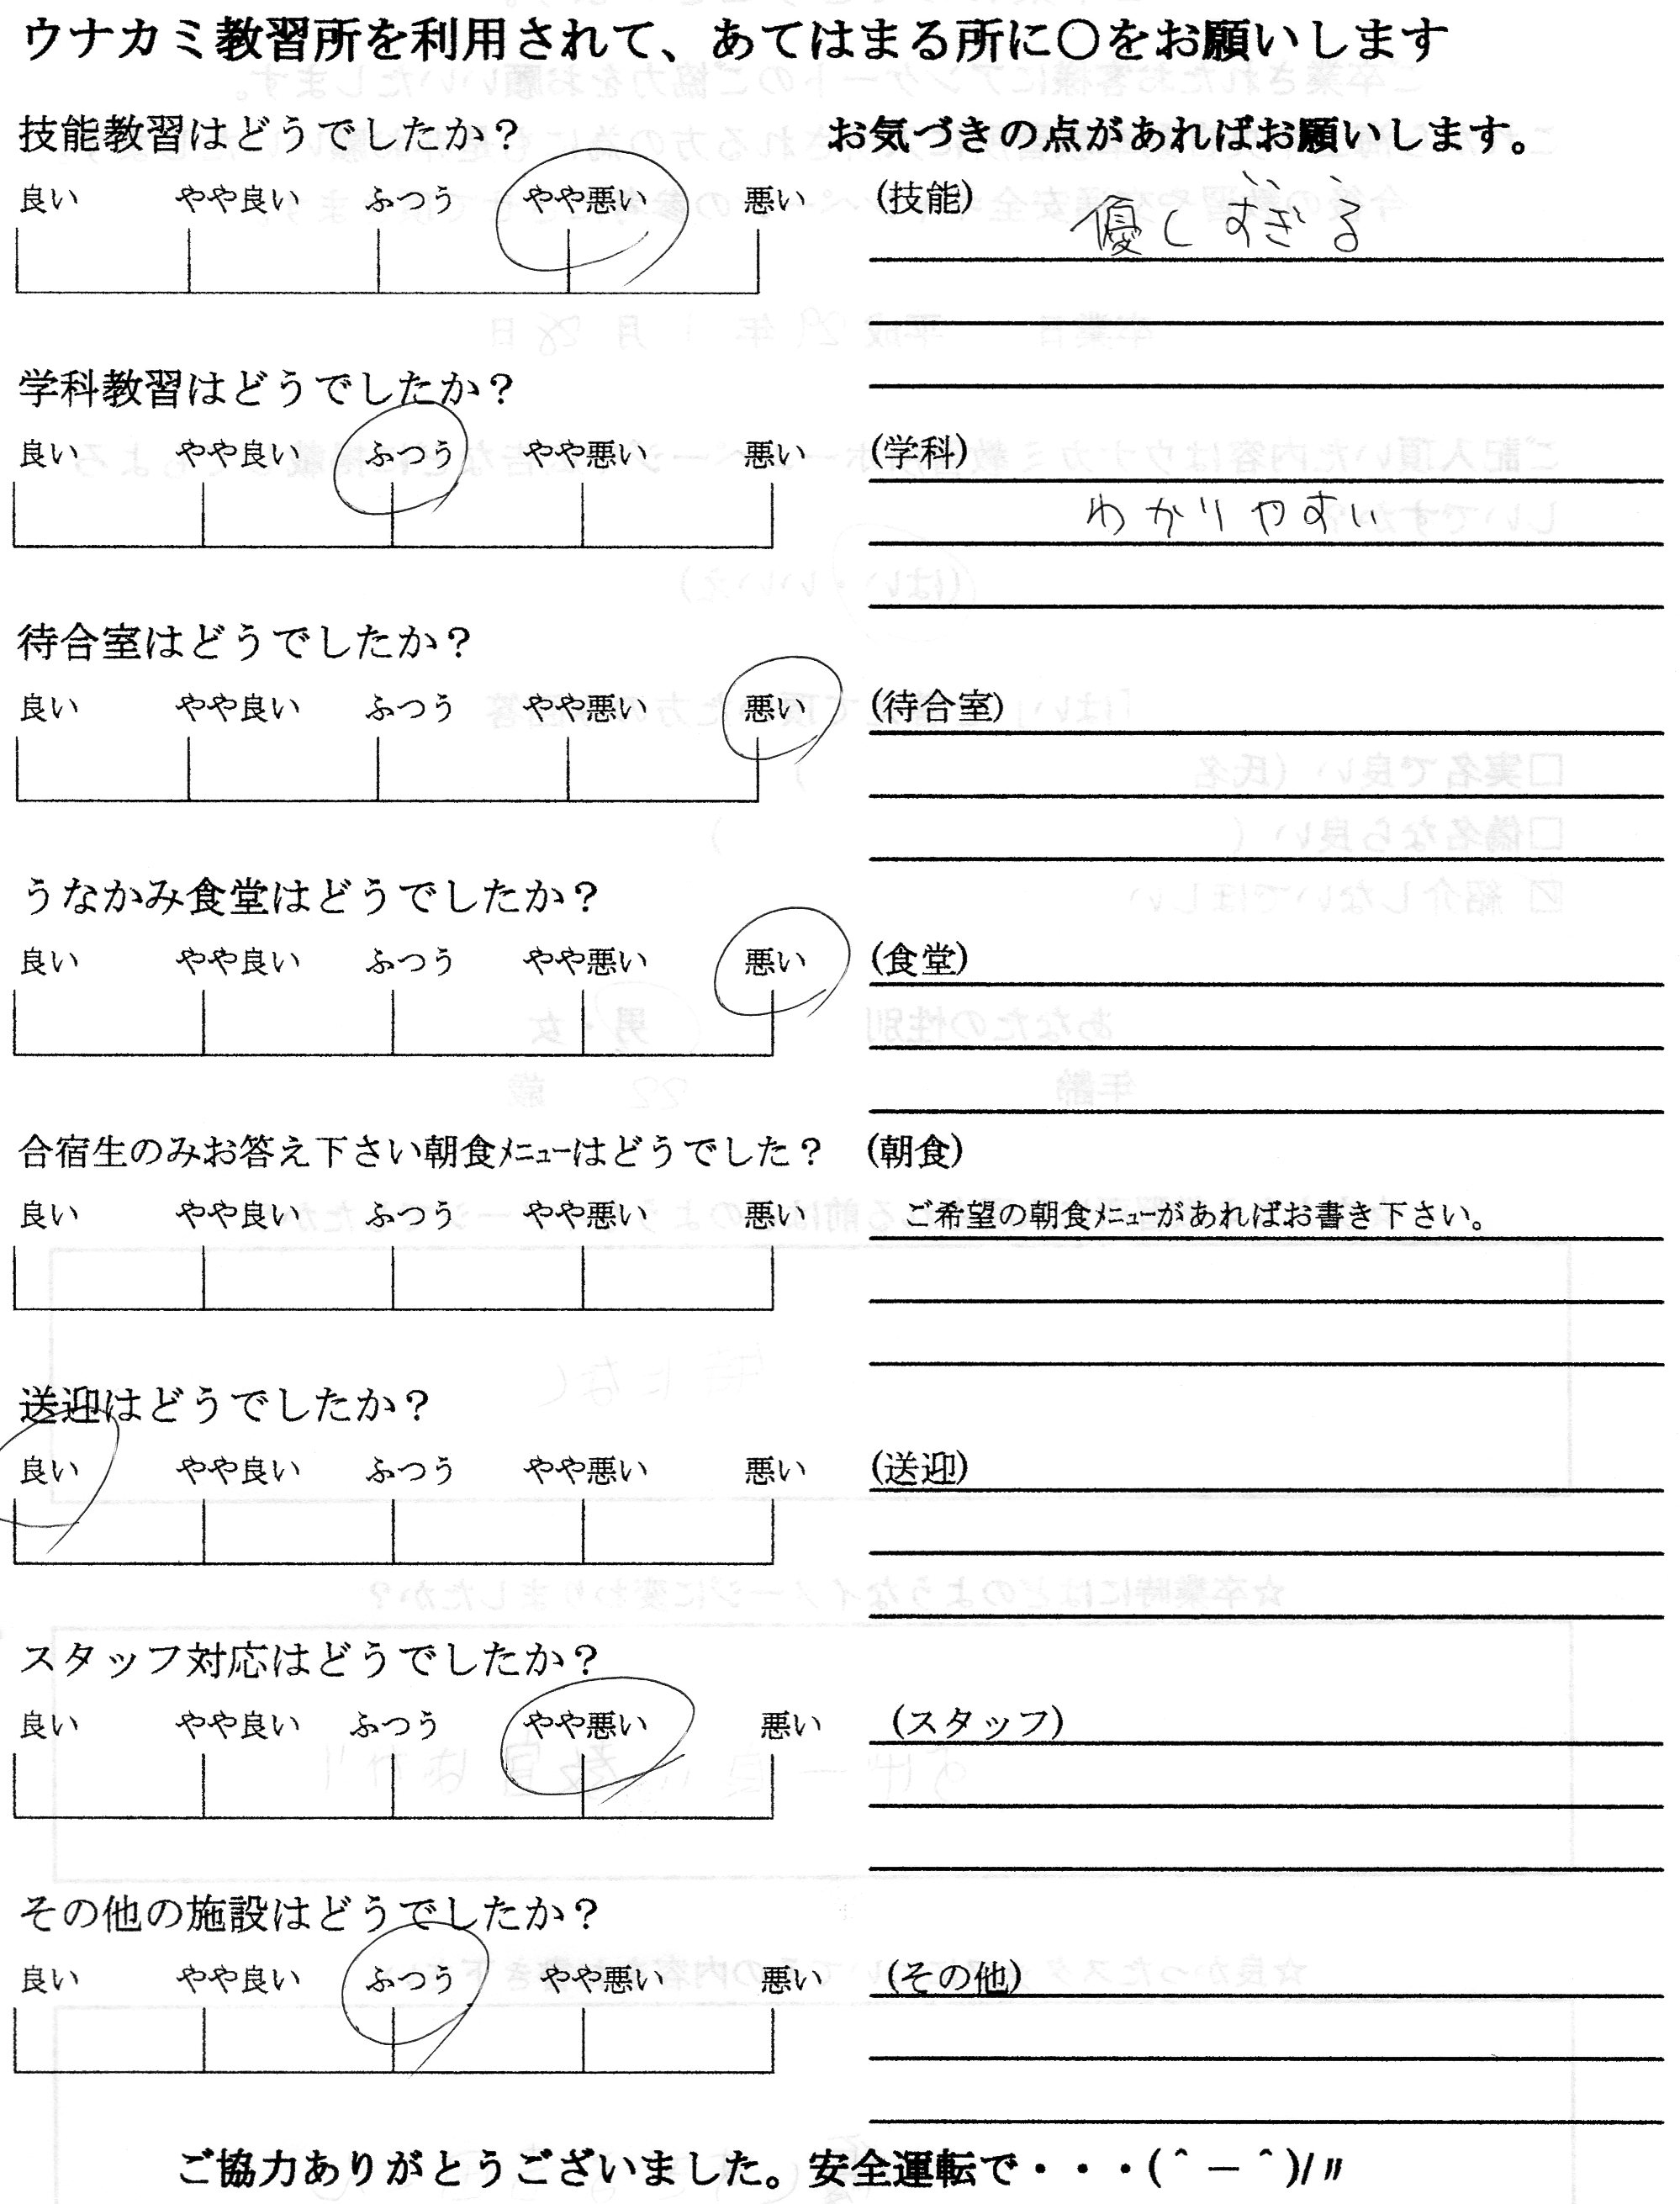 ウナカミ教習所を利用されて、あてはまる所に○をお願いします
技能教習はどうでしたか？
お気づきの点があればお願いします。
良い やや良い ふつう やや悪い 悪い
(技能)
優しすぎる
学科教習はどうでしたか？
良い やや良い ふつう やや悪い 悪い
(学科)
わかりやすい
待合室はどうでしたか？
良い やや良い ふつう やや悪い 悪い
(待合室)
うなかみ食堂はどうでしたか？
良い やや良い ふつう やや悪い 悪い
(食堂)
合宿生のみお答え下さい朝食ﾒﾆｭｰはどうでした？
(朝食)
良い やや良い ふつう やや悪い 悪い
ご希望の朝食ﾒﾆｭｰがあればお書き下さい。
送迎はどうでしたか？
良い やや良い ふつう やや悪い 悪い
(送迎)
スタッフ対応はどうでしたか？
良い やや良い ふつう やや悪い 悪い
(スタッフ)
その他の施設はどうでしたか？
良い やや良い ふつう やや悪い 悪い
(その他)
ご協力ありがとうございました。安全運転で・・・(＾－＾)/〃